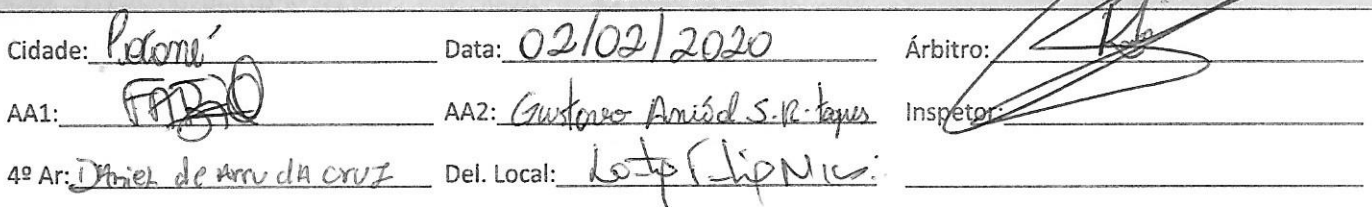 Cidade: Poconé Data: 02/02/2020 Árbitro:
AA1: FABIO AA2: Gustavo S.R. taques Inspetor:
4º Ar: DANiel de Arruda cruz Del. Local: